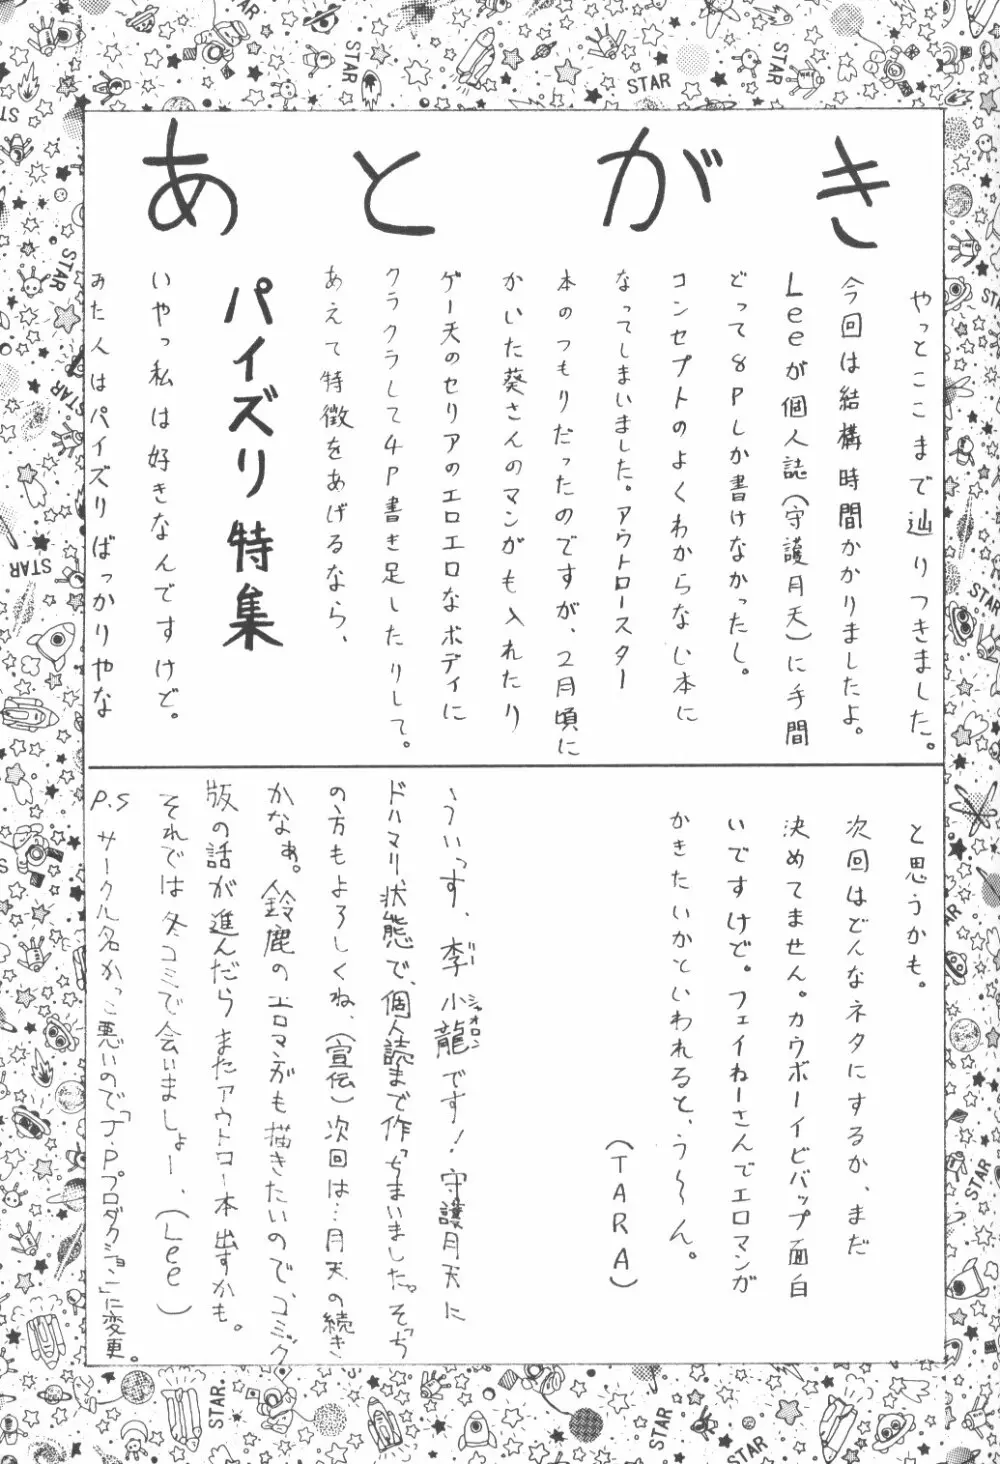 あとがき
やっとここまで辿りつきました。
今回は結構時間かかりましたよ。
Leeが個人誌(守護月天)に手間
どって8Pしか書けなかったし。
コンセプトのよくわからない本に
なってしまいました。アウトロースター
本のつもりだったのですが、2月頃に
かいた葵さんのマンガも入れたり
ゲー天のセリアのエロエロなボディに
クラクラして4P書き足したりして。
あえて特徴をあげるなら、
パイズリ特集
いやっ私は好きなんですけど。
みた人はパイズリばっかりやな
と思うかも。
次回はどんなネタにするか、まだ
決めてません。カウボーイビバップ面白
いですけど。フェイねーさんでエロマンガ
かきたいかといわれると、う〜ん。
(TARA)
ういっす、李小龍です!守護月天に
リー シャオロン
ドハマリ状態で、個人誌まで作っちまいました。そっち
の方もよろしくね、(宣伝)次回は…月天の続き
かなぁ。鈴鹿のエロマンガも描きたいので、コミック
版の話が進んだらまたアウトロー本出すかも。
それでは冬コミで会いましょー、(Lee)
P.S サークル名かっこ悪いので「J.Pプロダクション」に変更。
STAR
STAR
STAR
STAR
STAR
STAR
STAR
STAR
STAR
STAR
STAR
STAR
STAR
STAR